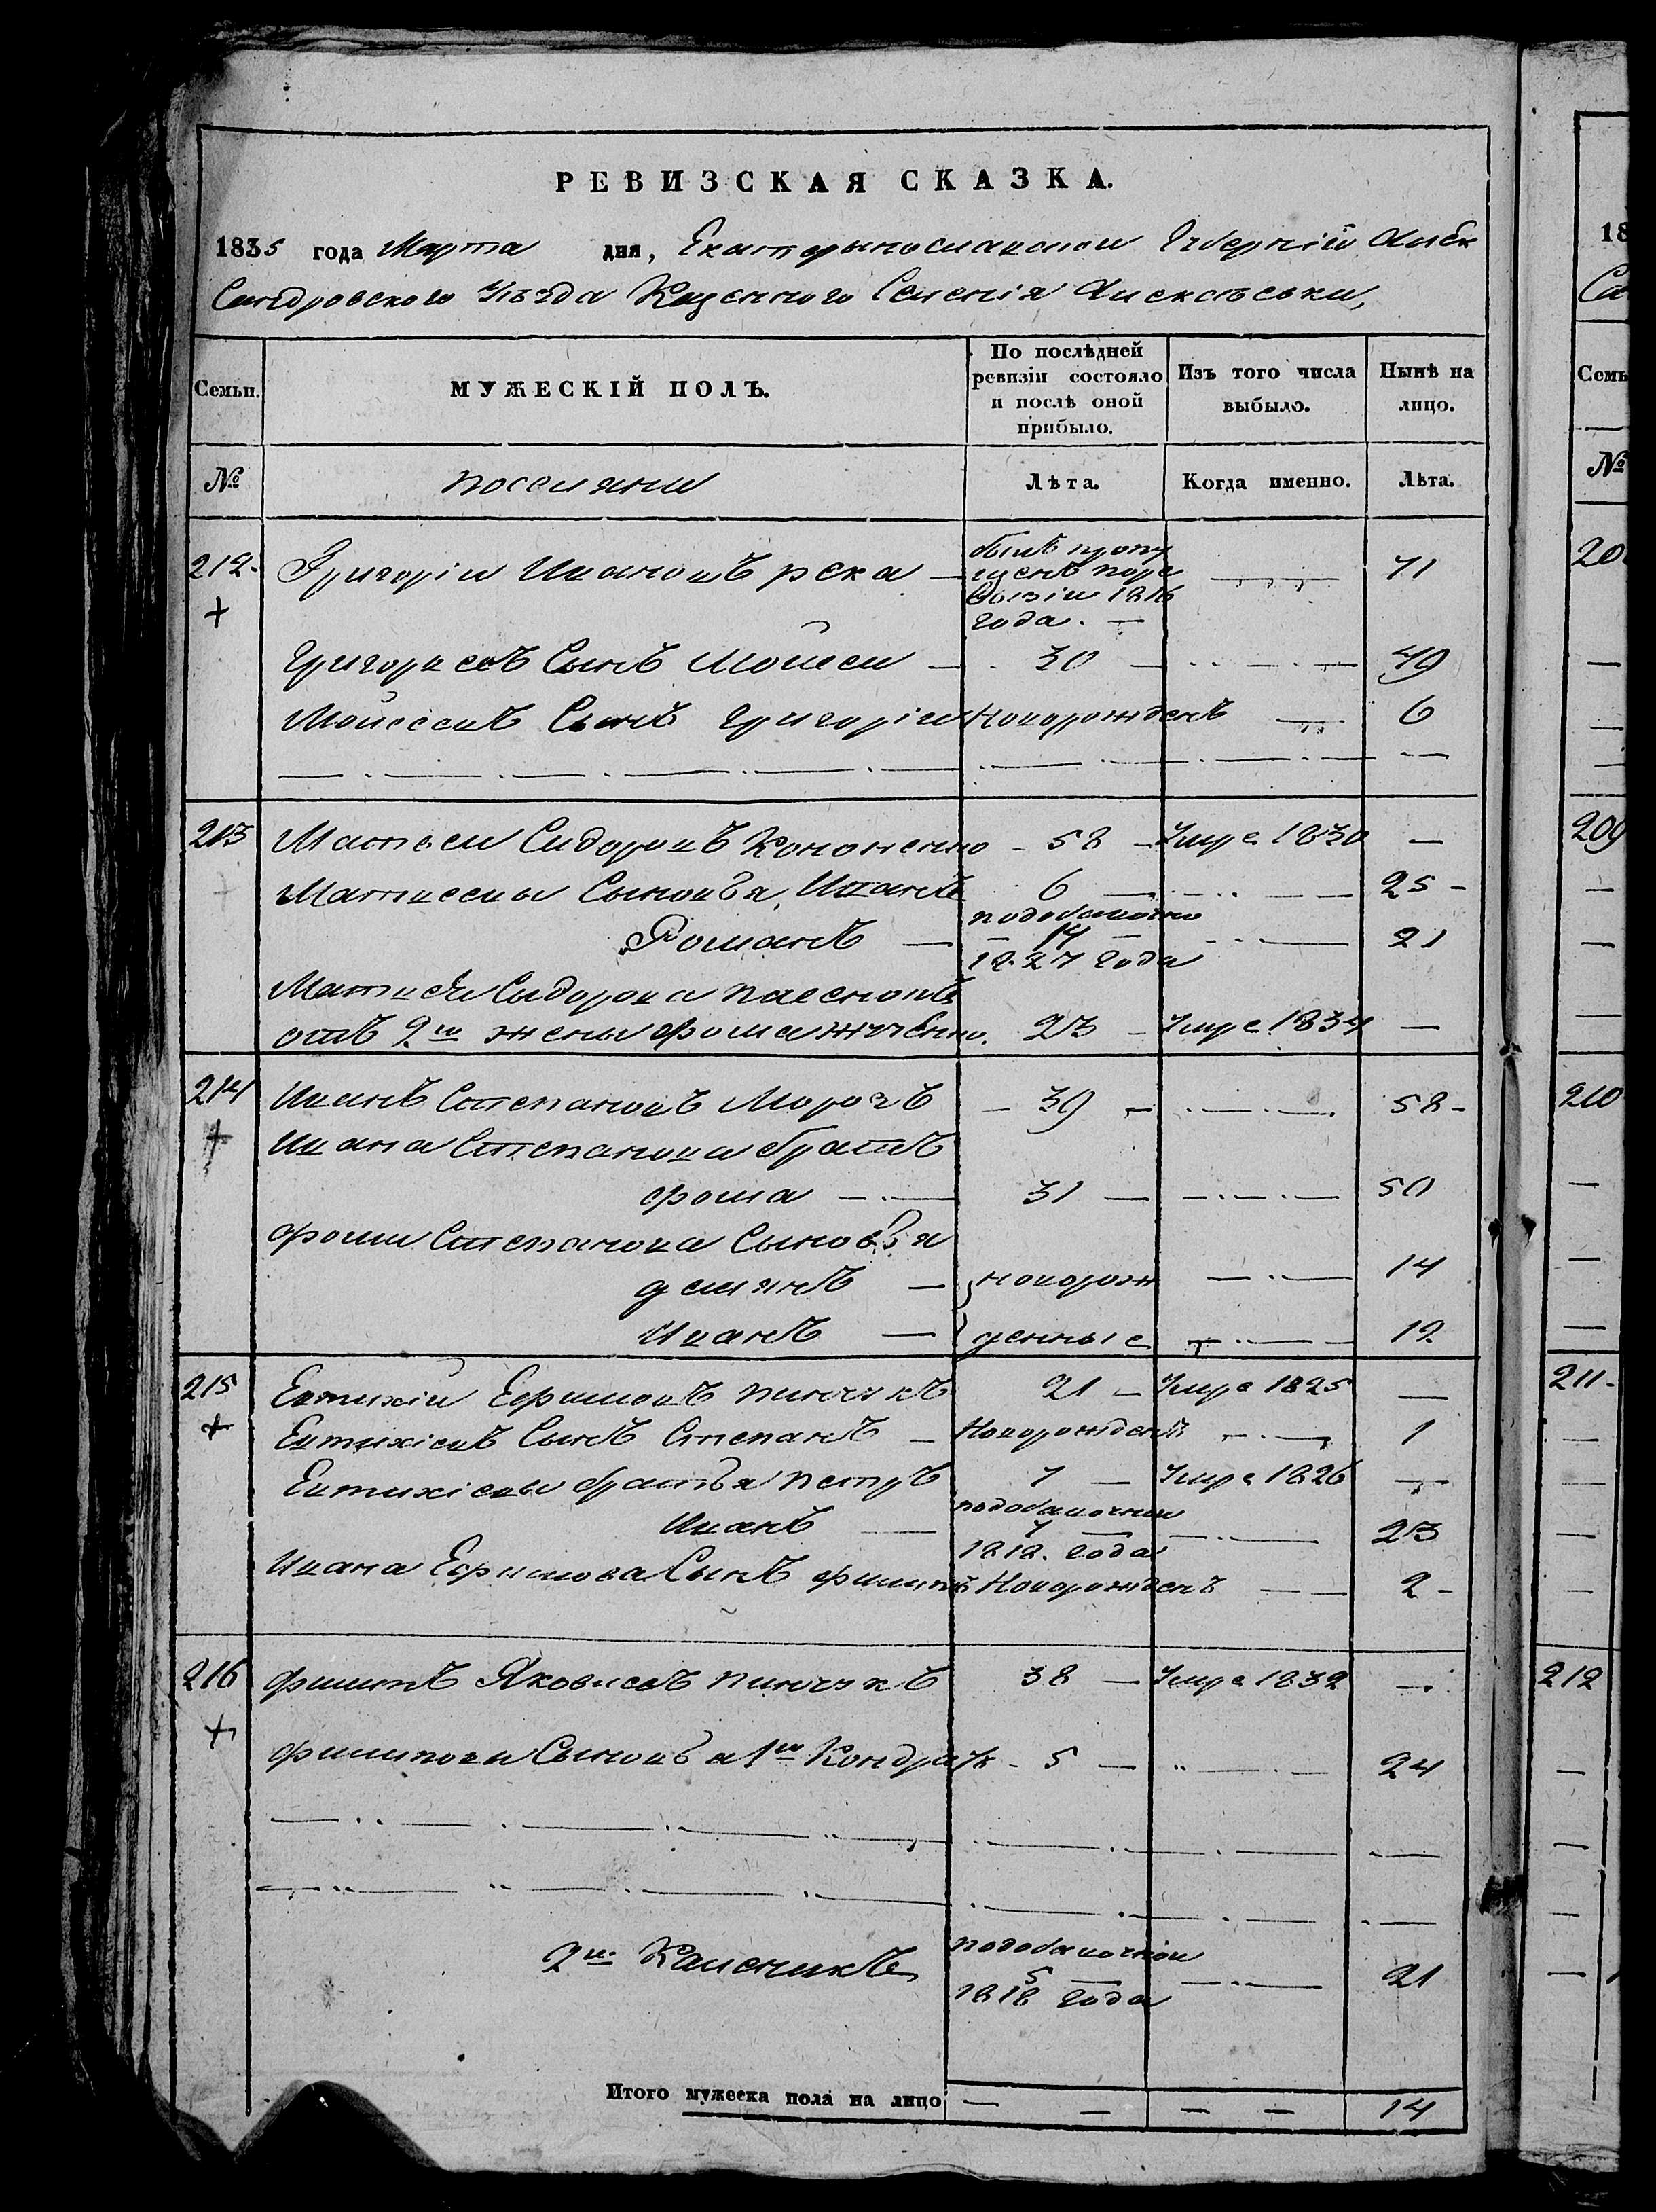 РЕВИЗСКАЯ СКАЗКА.
1835 года Марта дня, Екатеринославской Губерніи Алек
Сандровского Уѣзда Казенного Селенія Алексѣевки,
Семьи.
МУЖЕСКІЙ ПОЛЪ.
По послѣдней ревизіи состояло и послѣ оной прибыло.
Изъ того числа выбыло.
Нынѣ на лицо.
№
поселяни
Лѣта.
Когда именно.
Лѣта.
212. Григорій Ивановъ река — былъ пропу
щенъ по ре
визіи 1816
года. — 71
+
Григорьевъ Сынъ Мойсей — 30 — 49
Мойсеевъ Сынъ Григорій Новорожденъ — 6
213 Матвей Сидоровъ Кононенко — 58 — Умре 1830 —
Матвеевы Сыновья, Иванъ 6 — 25 —
Романъ — подобавочно
14
1827 года — 21
Матвея Сидорова пасенокъ
отъ 2й жены Фома 23 — Умре 1834 —
214 Иванъ Степановъ Морозъ — 39 — 58 —
+
Ивана Степанова братъ
Фома — 31 — 50
Фомы Степанова Сыновья
новорож — 14
Иванъ — денные — 12
215 Евтихій Ефимовъ пинчукъ 21 — Умре 1825 —
+
Евтихіевъ Сынъ Степанъ — Новорожденъ — 1
Евтихіевы братья петръ 7 — Умре 1826 —
Иванъ — подобавочной
7
1818. года — 23
Ивана Ефимова Сынъ филипъ Новорожденъ — 2 —
216 филипъ Яковлевъ пинчукъ 38 — Умре 1832 —
+
филиповы Сыновья 1й Кондратъ — 5 — 24
2й Каленикъ подобавочной
5
1818 года — 21
Итого мужеска пола на лицо — — — — 14
18
Са
Семь
№
20
209
210
211-
212